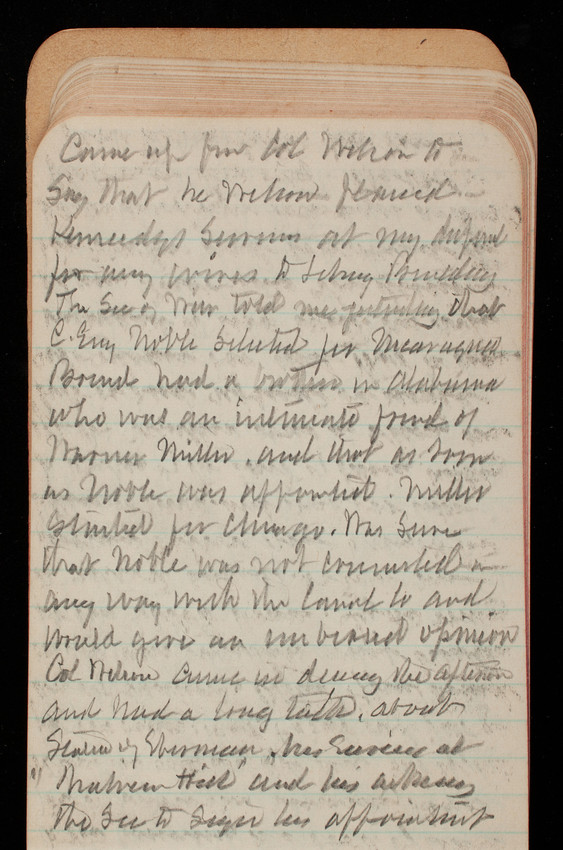 Came up from Col Wilson to
Say that he Wilson placed
Kennedys Services at my disposal
for any
The Sec of War told me yesterday that
C. Eng Noble Selected for Nicaragua
Board had a brother in Alabama
who was an intimate friend of
Warner Miller, and that as soon
as Noble was appointed. Miller
Started for Chicago. Was Sure
that Noble was not connected in
any way with the Canal Co and
would give an unbiased opinion
Col Wilson came in during the afternoon
and had a long talk, about
his Service at
and his asking
the Sec to Sign his appointment